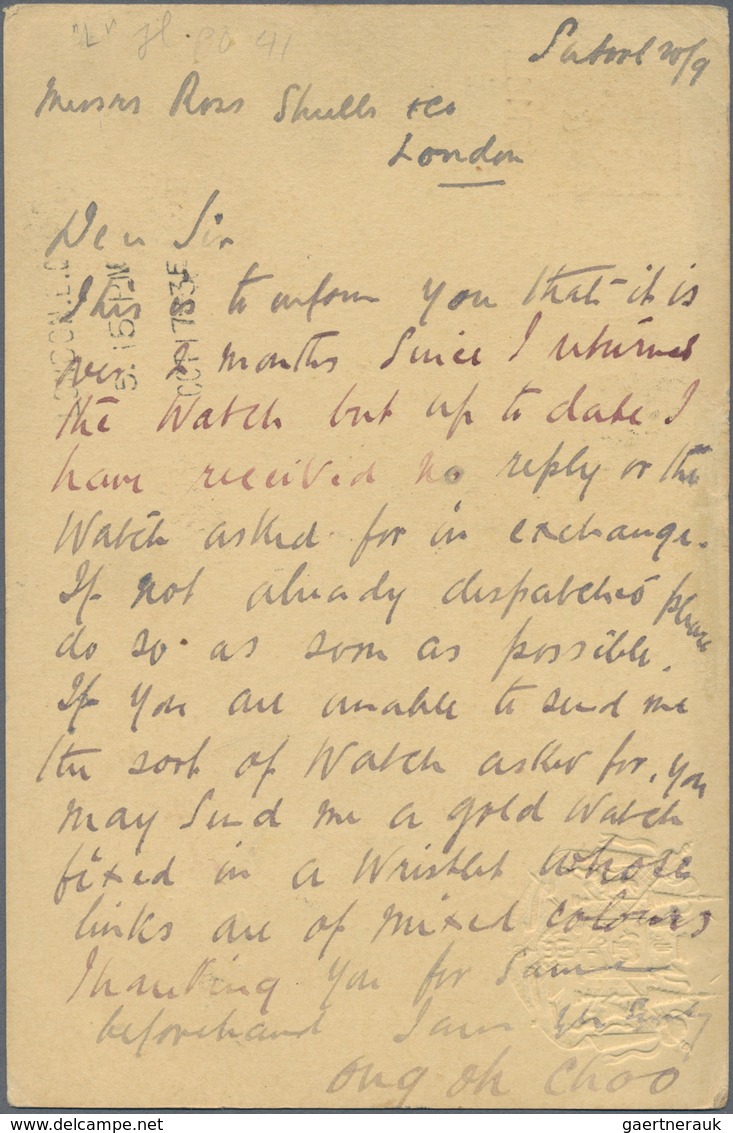 Messrs Ross & Co
London
Dear Sir
This is to inform you that it is
over 2 months since I returned
the Watch but up to date I
have received no reply or the
Watch asked for in exchange.
If not already despatched please
do so as soon as possible.
If you are unable to send me
the sort of Watch asked for, you
may send me a gold Watch
fixed in a Wristlet whose
links are of mixed colours
Thanking you for same
beforehand I am
Ong Oh Choo
gaertnerauk